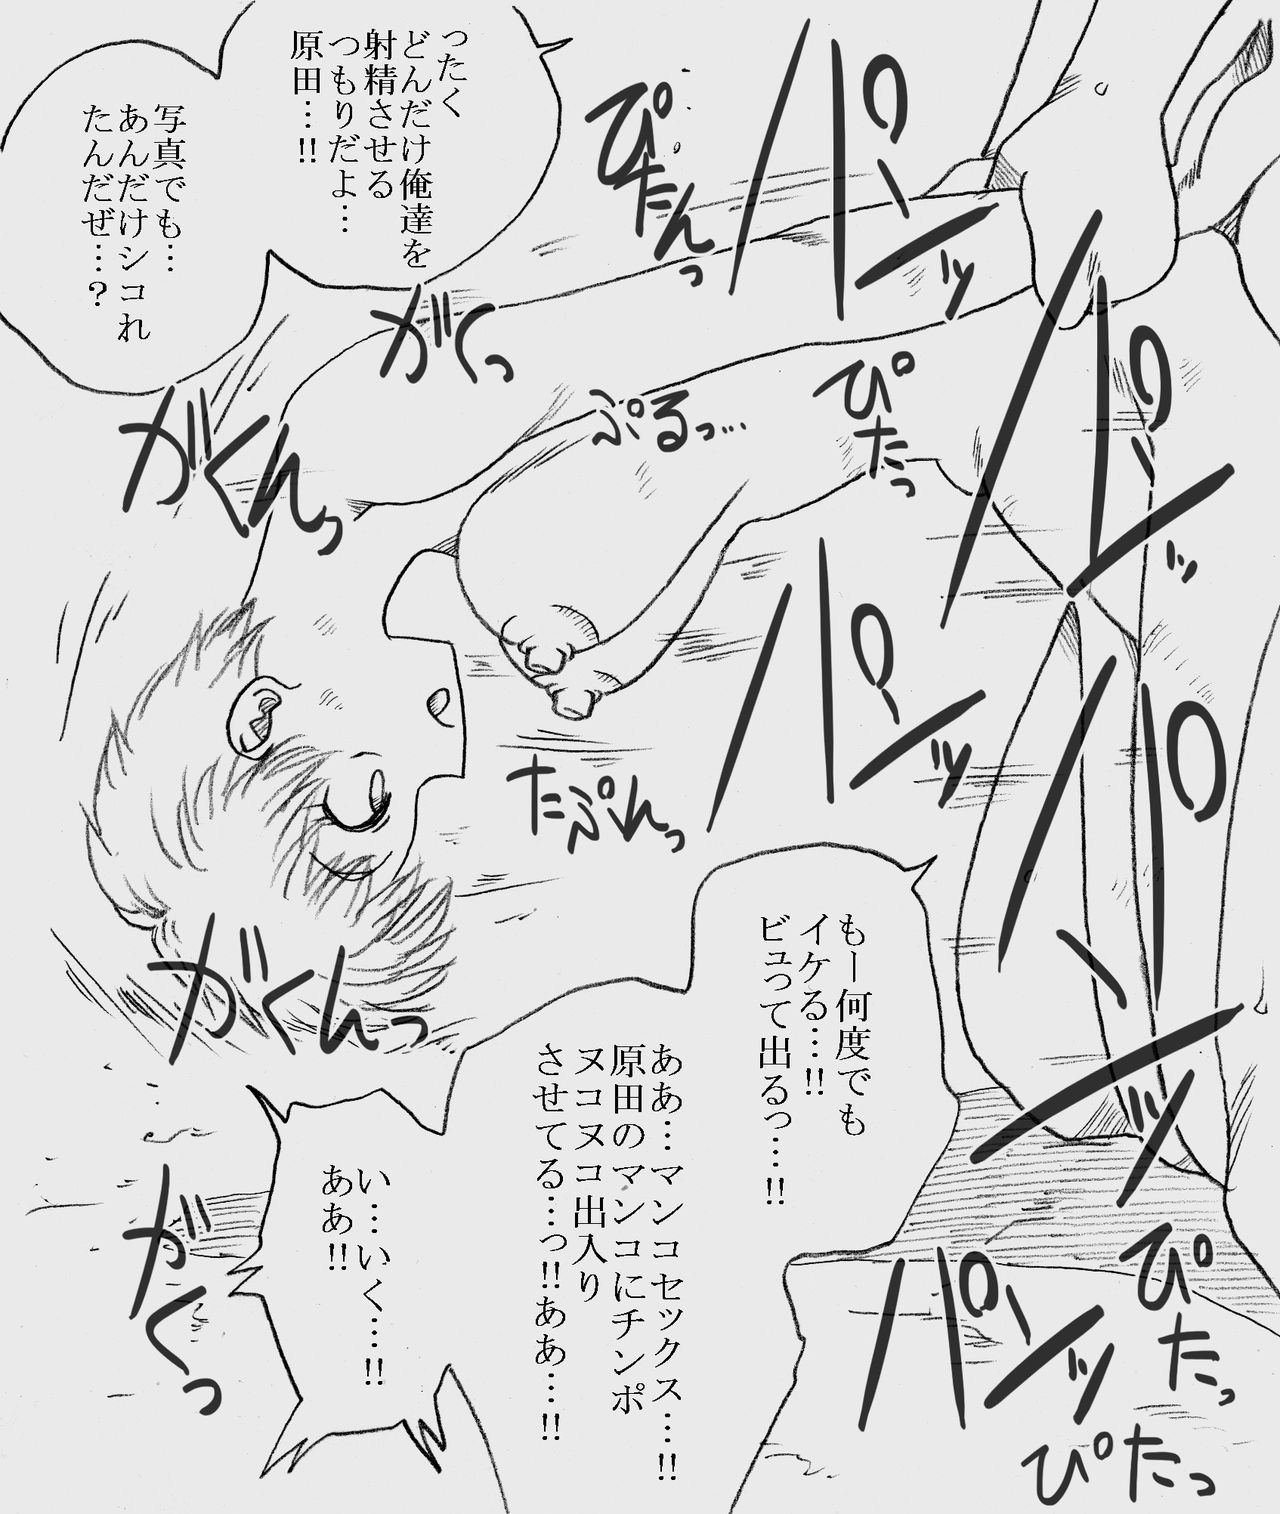 ったく
どんだけ俺達を
射精させる
つもりだよ…
原田…!!
写真でも…
あんだけシコれ
たんだぜ…?
パンッ
ぴたんっ
がくっ
がくんっ
ぷるっ…
ぴたっ
パンッ
パンッ
たぷんっ
パンッ
もー何度でも
イケる…!!
ビュって出るっ…!!
ああ…マンコセックス…!!
原田のマンコにチンポ
ヌコヌコ出入り
させてる…っ!!ああ…!!
がくんっ
い…いく…!!
ああ!!
がくっ
ぴたっ
パンッ
ぴたっ